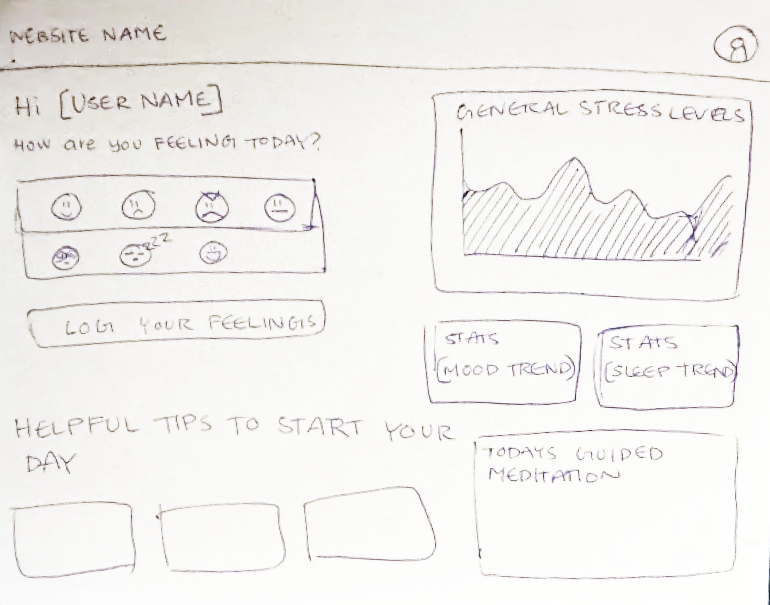 WEBSITE NAME
Hi [USER NAME]
How are you FEELING TODAY?
zzz
LOG YOUR FEELINGS
GENERAL STRESS LEVELS
STATS
(MOOD TREND)
STATS
(SLEEP TREND)
HELPFUL TIPS TO START YOUR
DAY
TODAYS GUIDED
MEDITATION